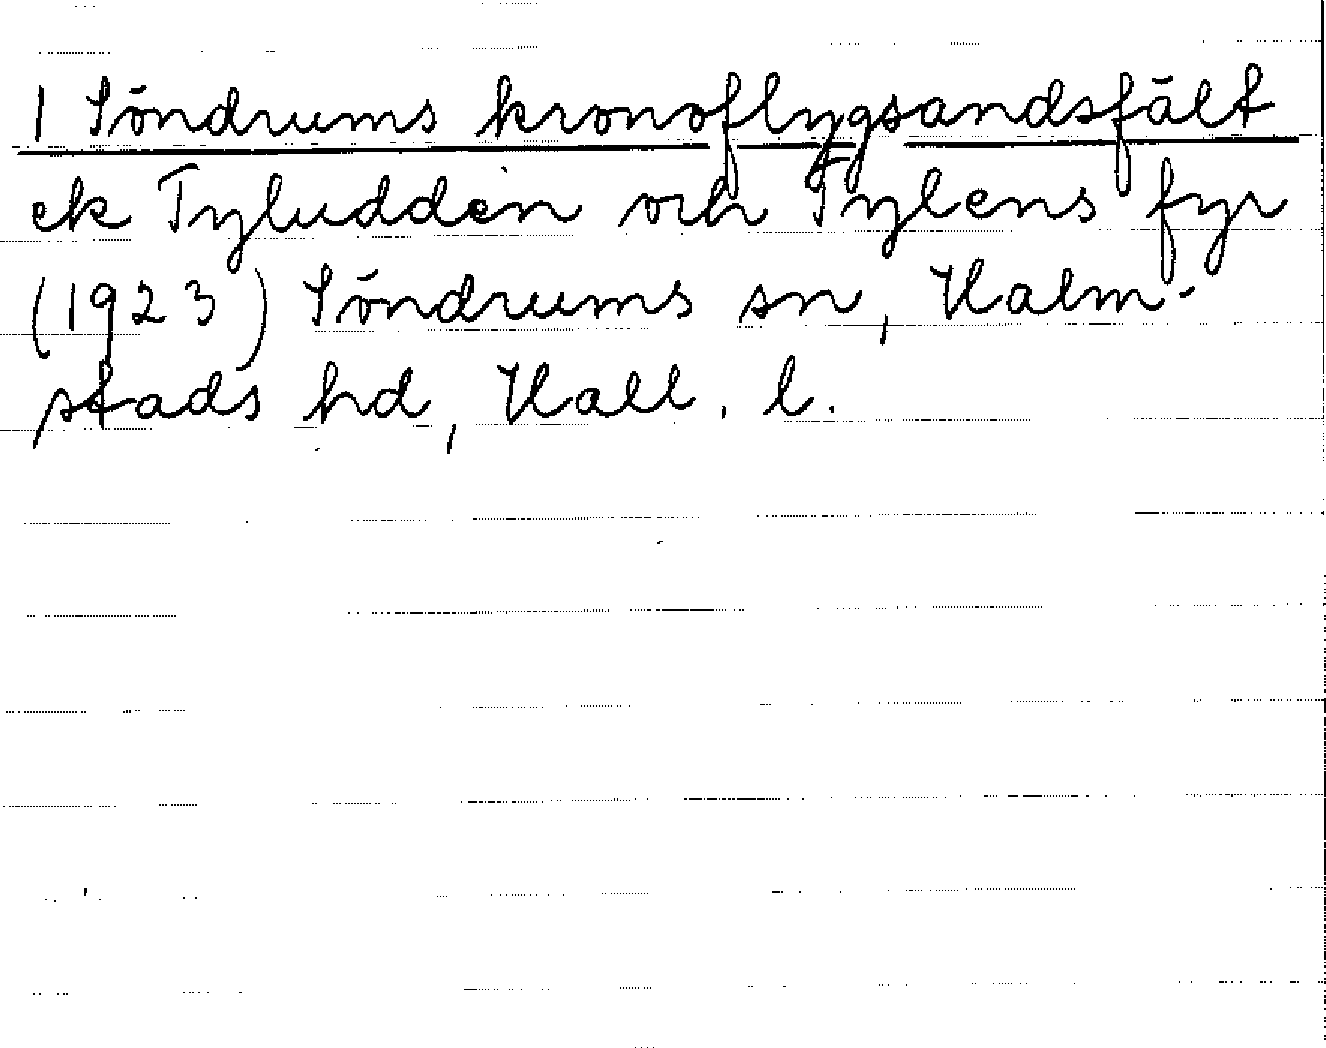 1 Söndrums kronoflygsandsfält
ek Tyludden och Tylens fyr
(1923) Söndrums sn, Halm-
stads hd, Hall. l.